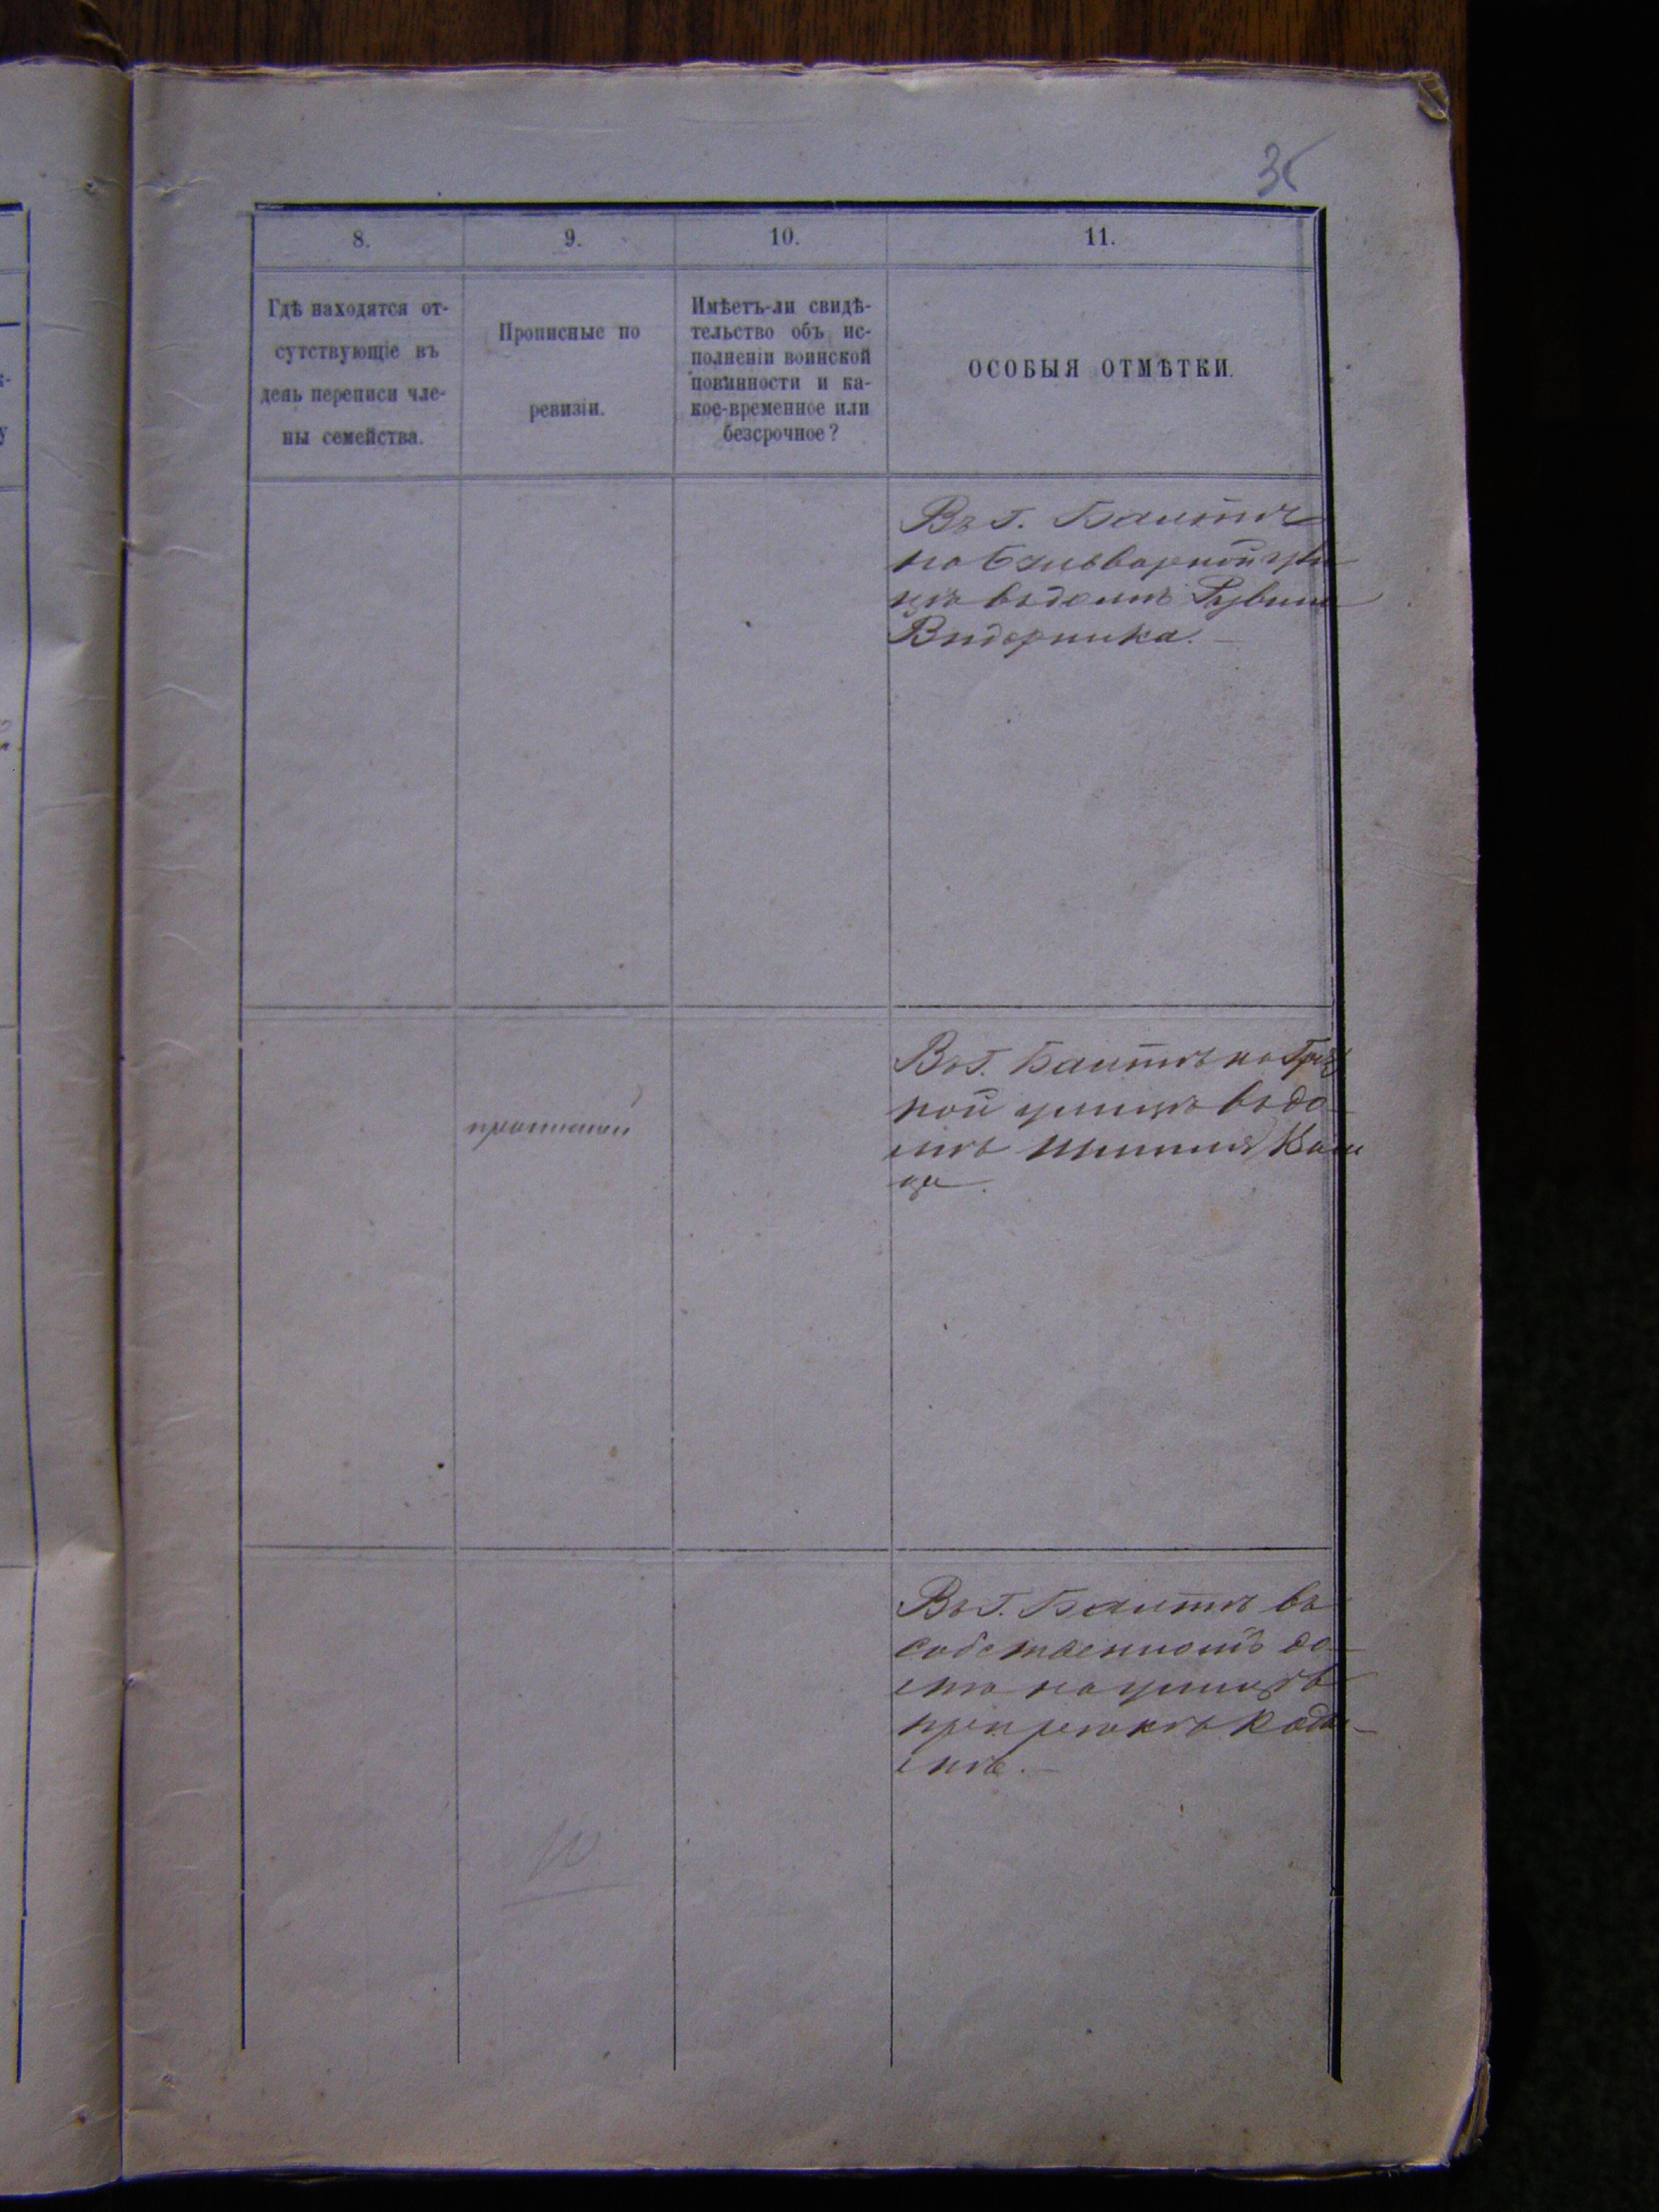 8.
9.
10.
11.
Гдѣ находятся от-
сутствующіе въ
день переписи чле-
ны семейства.
Прописные по
ревизіи.
Имѣетъ-ли свидѣ-
тельство объ ис-
полненіи воинской
повинности и ка-
кое-временное или
безсрочное?
ОСОБЫЯ ОТМѢТКИ.
Въ Г. Балтѣ
на Бульварной ули
цѣ въ домѣ Рувина
Видерника.
прописной
Въ Г. Балтѣ на Гряз
ной улицѣ въ до-
мѣ
Въ Г. Балтѣ въ
собственномъ до-
мѣ на улицѣ